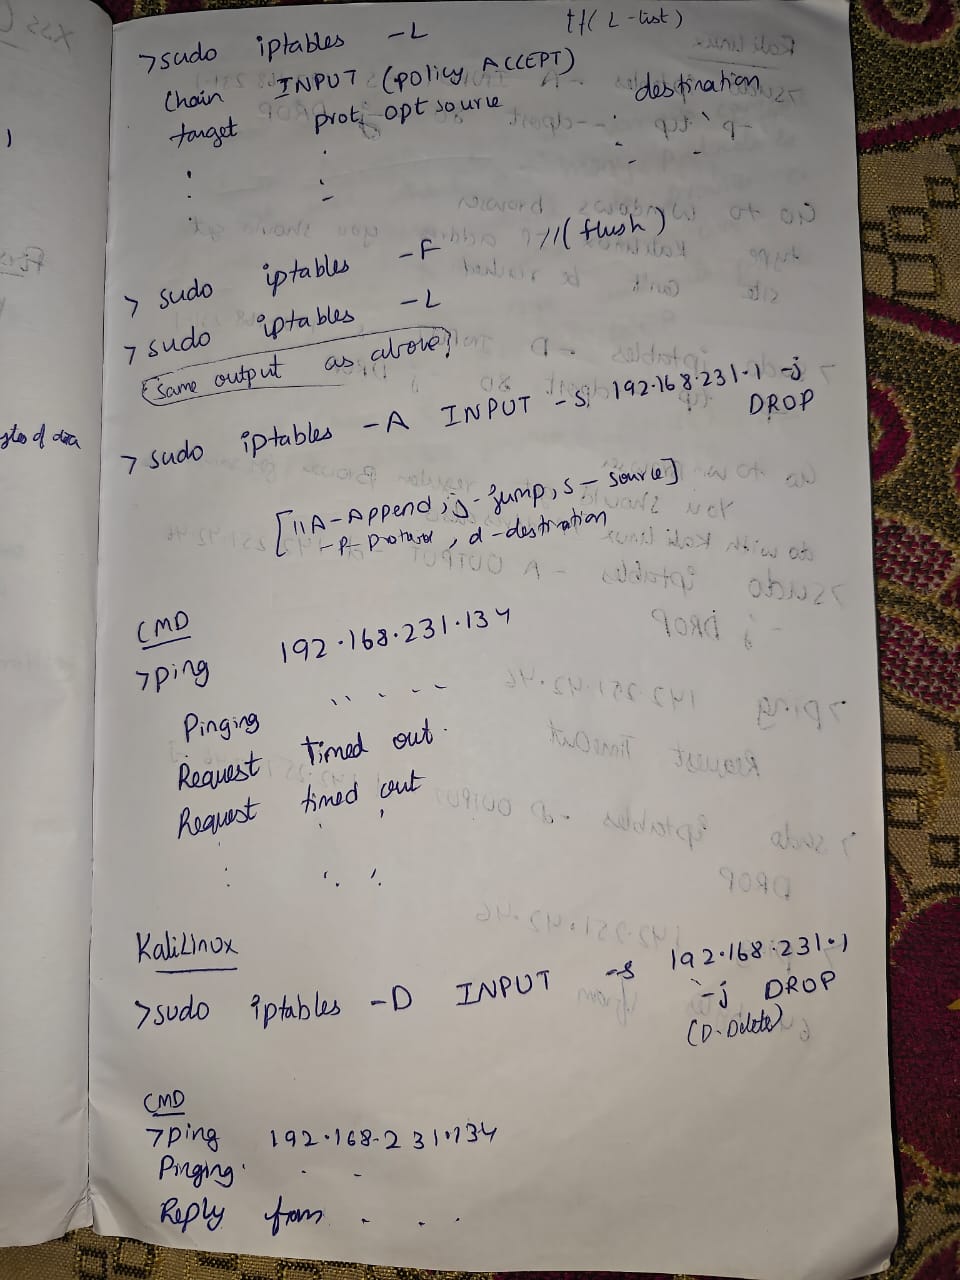 >sudo iptables -L // ( L-list )
Chain INPUT (policy ACCEPT)
target prot opt source destination
> sudo iptables -F // (flush)
> sudo iptables -L
(same output as above)
> sudo iptables -A INPUT -s 192.168.231.1 -j
DROP
[ // A-Append, j-jump, s-source]
-p- Protocol, d-destination
CMD
>ping 192.168.231.134
Pinging
Request timed out.
Request timed out
KaliLinux
>sudo iptables -D INPUT -s 192.168.231.1
-j DROP
(D-Delete)
CMD
>ping 192.168.231.134
Pinging.
Reply from . . .